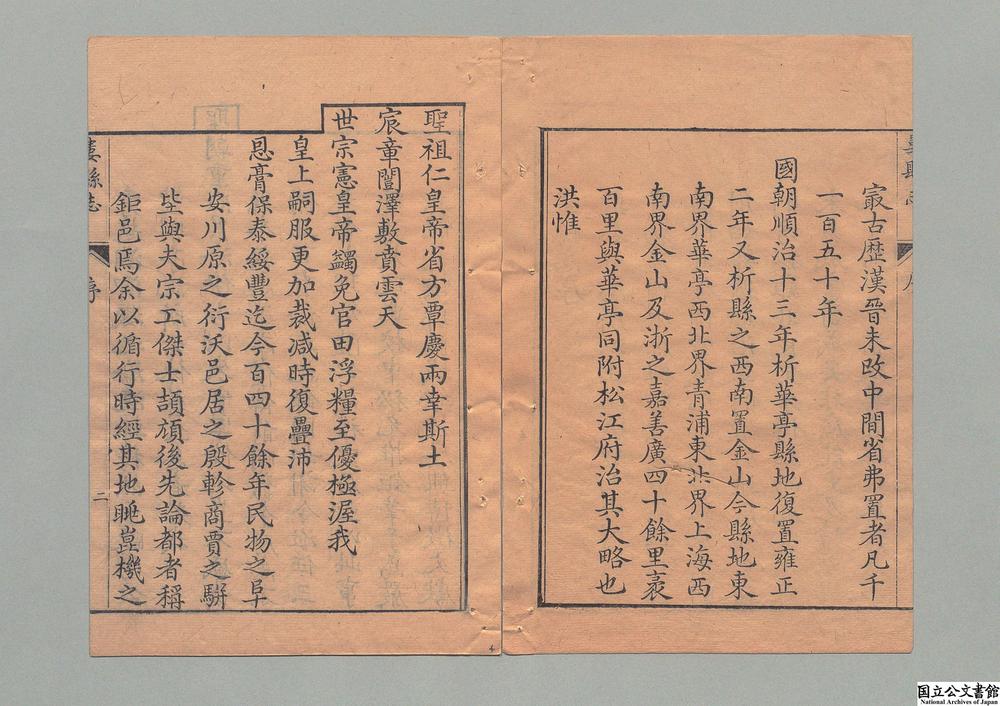 㝡古歷漢晉未改中間省弗置者凡千
一百五十年
國朝順治十三年析華亭縣地復置雍正
二年又析縣之西南置金山今縣地東
南界華亭西北界青浦東北界上海西
南界金山及浙之嘉善廣四十餘里袤
百里與華亭同附松江府治其大略也
洪惟
聖祖仁皇帝省方覃慶兩幸斯土
宸章闓澤敷賁雲天
世宗憲皇帝蠲免官田浮糧至優極渥我
皇上嗣服更加裁減時復疊沛
恩膏保泰綏豐迄今百四十餘年民物之阜
安川原之衍沃邑居之殷軫商賈之駢
坒與夫宗工傑士頡頏後先論都者稱
鉅邑焉余以循行時經其地眺崑機之
婁縣志
序
二
国立公文書館
National Archives of Japan